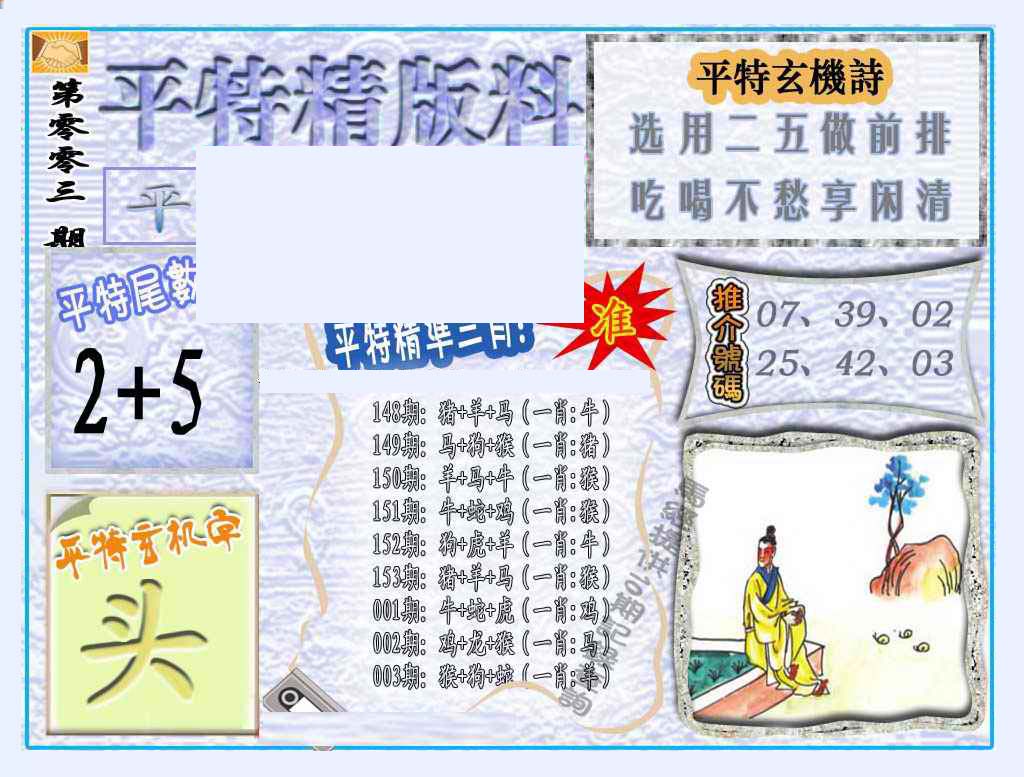 第零零三期
平特精版料
平
平特玄機詩
选用二五做前排
吃喝不愁享闲清
平特尾數
2+5
平特精準三肖!
准
推介號碼
07、39、02
25、42、03
148期: 猪+羊+马(一肖:牛)
149期: 马+狗+猴(一肖:猪)
150期: 羊+马+牛(一肖:猴)
151期: 牛+蛇+鸡(一肖:猴)
152期: 狗+虎+羊(一肖:牛)
153期: 猪+羊+马(一肖:猴)
001期: 牛+蛇+虎(一肖:鸡)
002期: 鸡+龙+猴(一肖:马)
003期: 猴+狗+蛇(一肖:羊)
平特玄机字
头